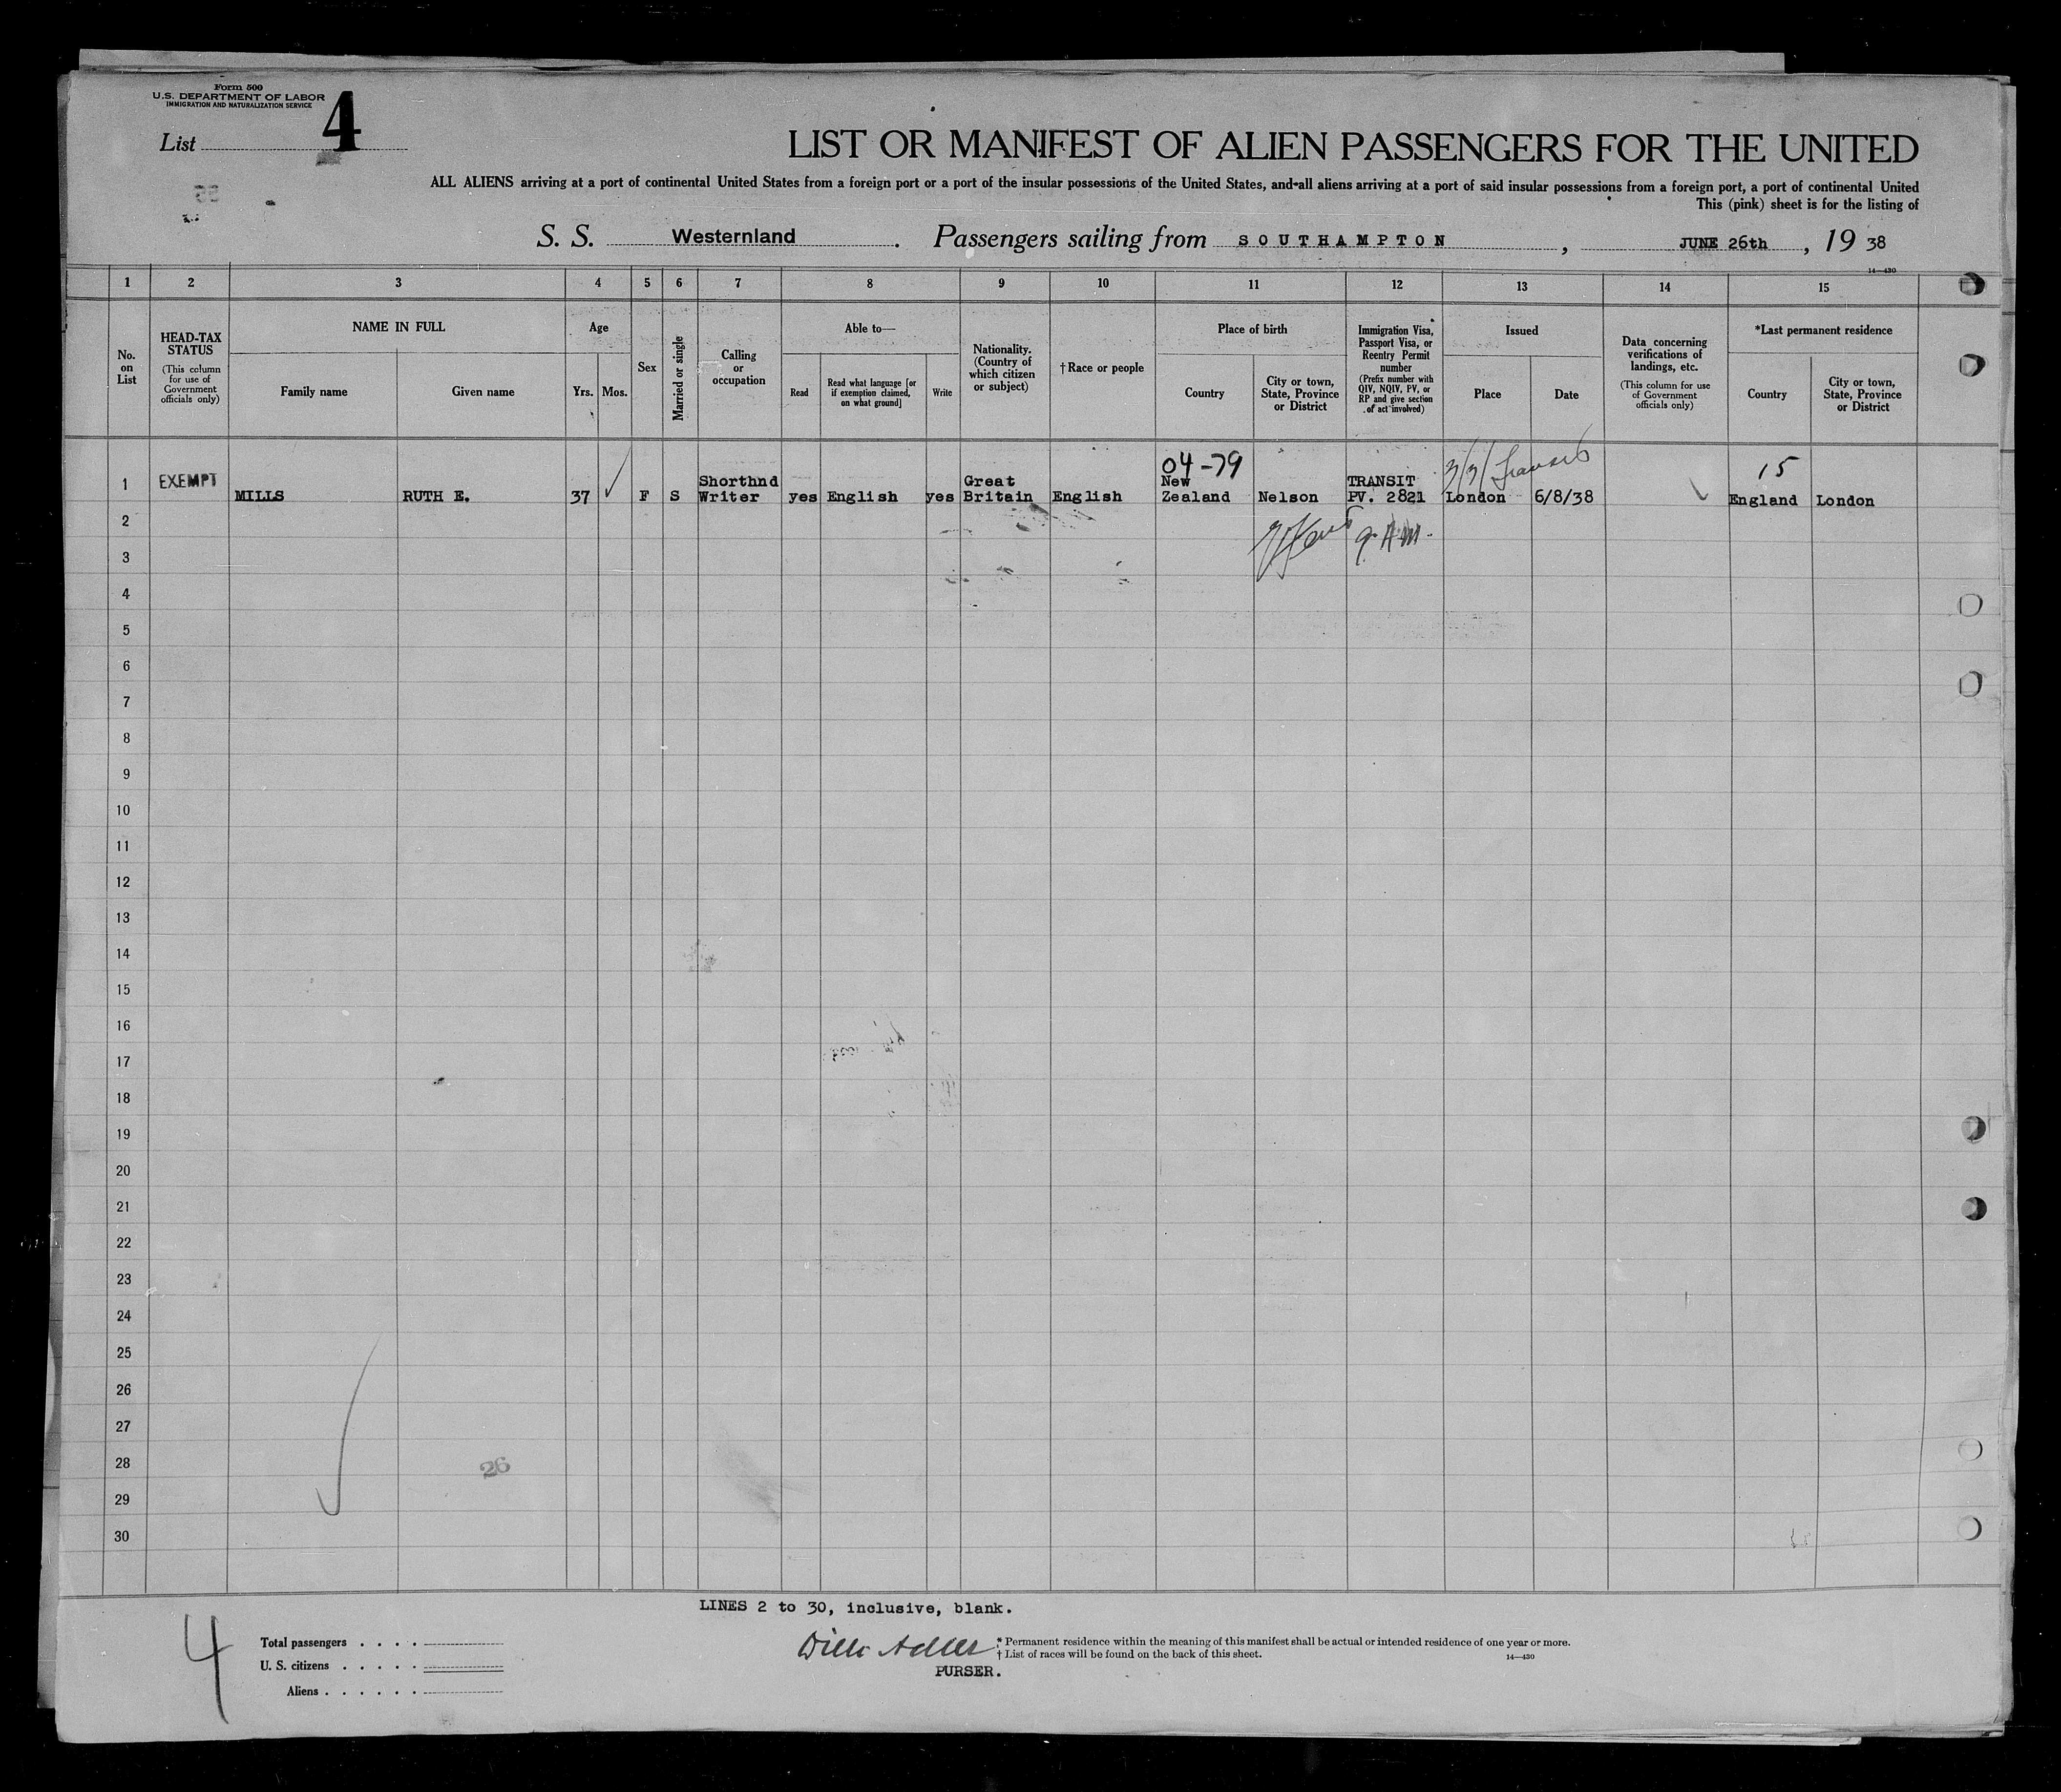 Form 500
U.S. DEPARTMENT OF LABOR
IMMIGRATION AND NATURALIZATION SERVICE
List 4
LIST OR MANIFEST OF ALIEN PASSENGERS FOR THE UNITED
ALL ALIENS arriving at a port of continental United States from a foreign port or a port of the insular possessions of the United States, and all aliens arriving at a port of said insular possessions from a foreign port, a port of continental United
This (pink) sheet is for the listing of
S. S. Westernland . Passengers sailing from SOUTHAMPTON , JUNE 26th , 19 38
14—430
1 2 3 4 5 6 7 8 9 10 11 12 13 14 15
No. on List
HEAD-TAX STATUS
(This column for use of Government officials only)
NAME IN FULL
Family name
Given name
Age
Yrs.
Mos.
Sex
Married or single
Calling or occupation
Able to—
Read
Read what language [or if exemption claimed, on what ground]
Write
Nationality. (Country of which citizen or subject)
†Race or people
Place of birth
Country
City or town, State, Province or District
Immigration Visa, Passport Visa, or Reentry Permit number
(Prefix number with QIV, NQIV, PV, or RP and give section of act involved)
Issued
Place
Date
Data concerning verifications of landings, etc.
(This column for use of Government officials only)
*Last permanent residence
Country
City or town, State, Province or District
04-79
15
1 EXEMPT MILLS RUTH E. 37 F S Shorthnd Writer yes English yes Great Britain English New Zealand Nelson TRANSIT PV. 2821 London 6/8/38 England London
2
3
4
5
6
7
8
9
10
11
12
13
14
15
16
17
18
19
20
21
22
23
24
25
26
27
28
26
29
30
LINES 2 to 30, inclusive, blank.
4
Total passengers
U. S. citizens
Aliens
Adler
PURSER.
* Permanent residence within the meaning of this manifest shall be actual or intended residence of one year or more.
† List of races will be found on the back of this sheet.
14—430